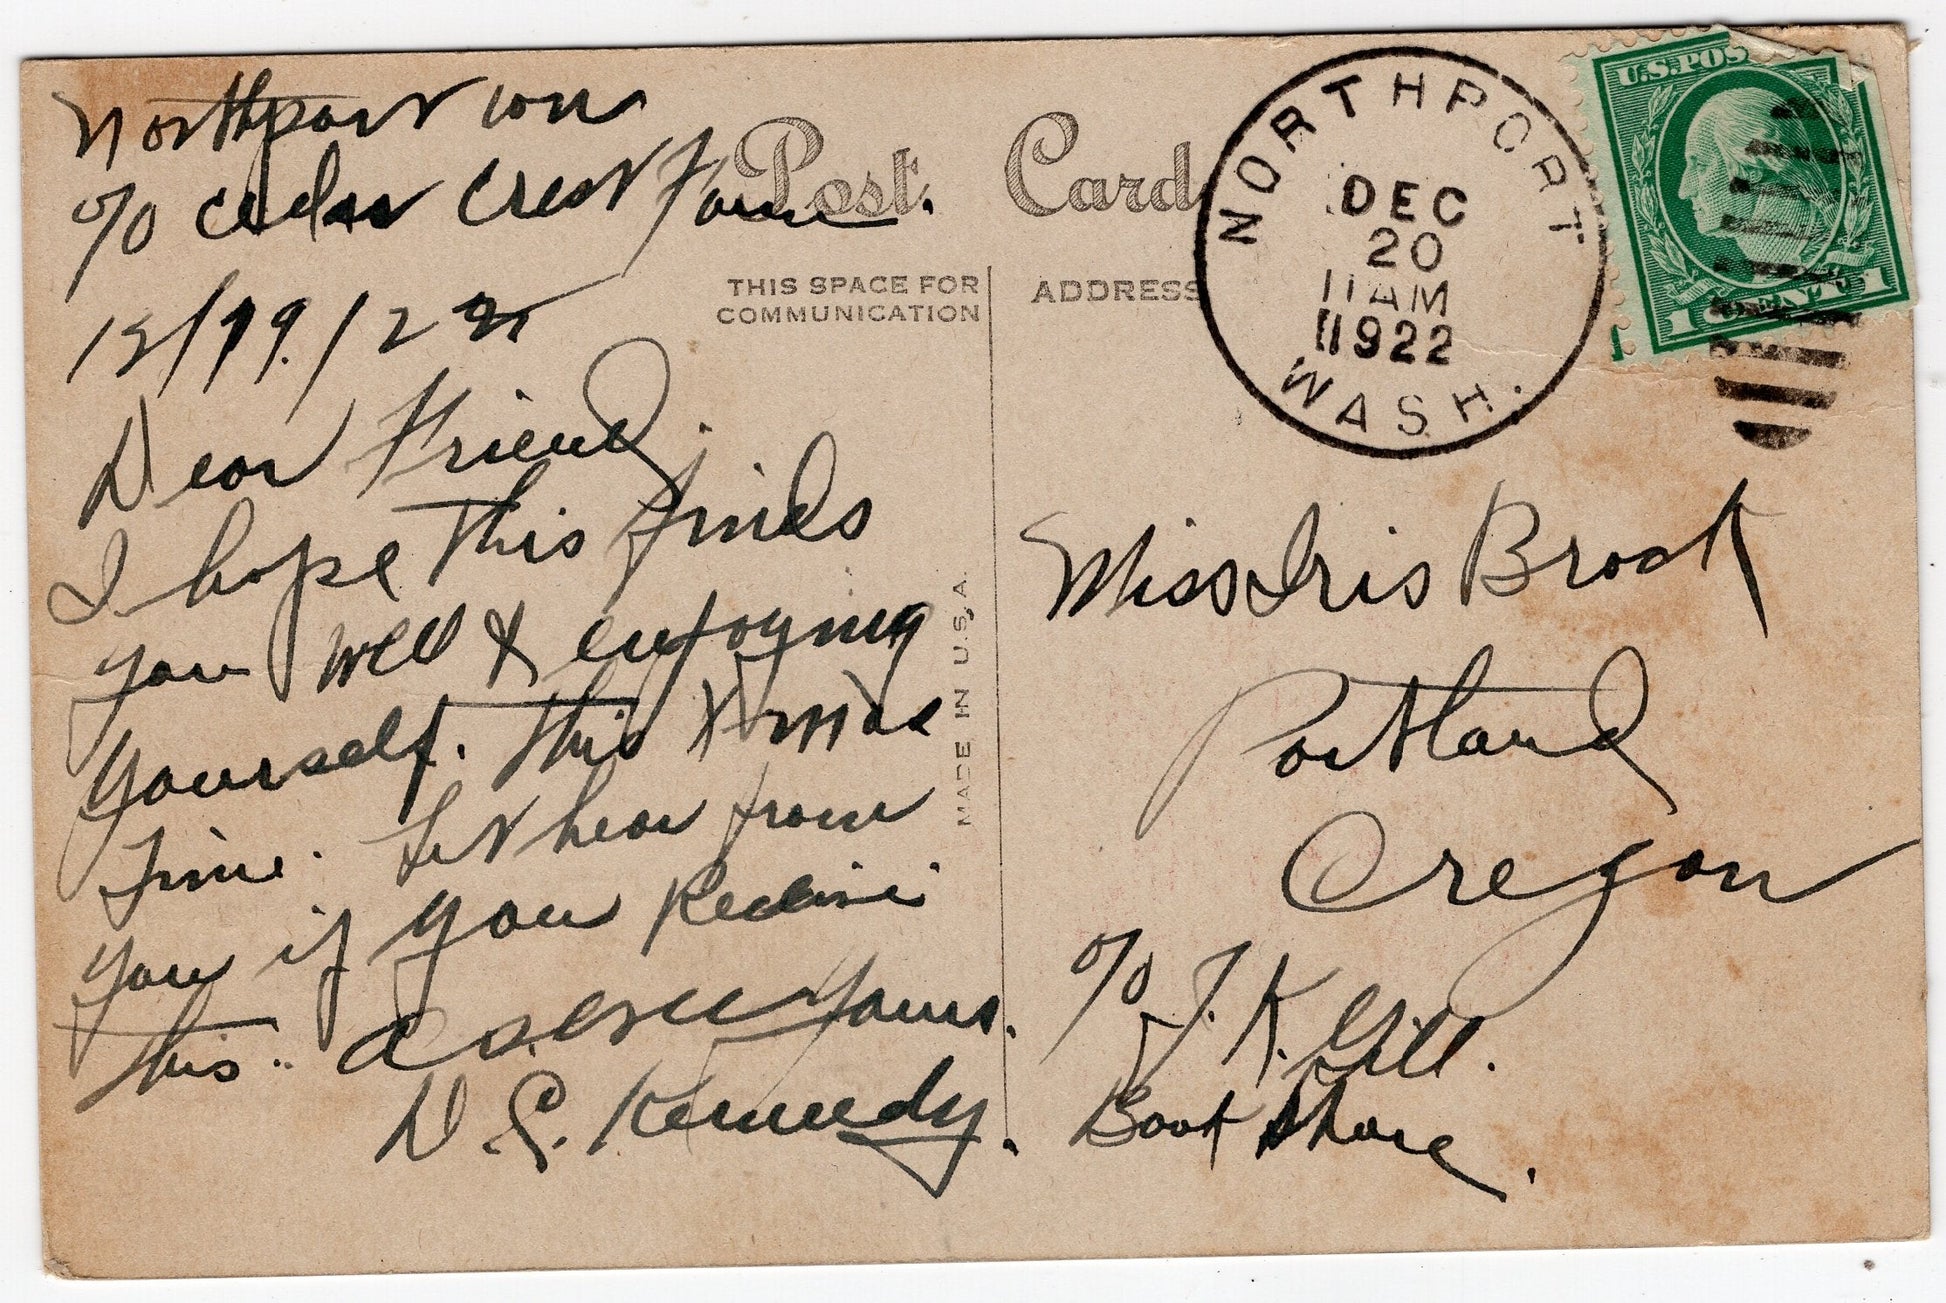 Northport Wn
c/o Cedar Crest Farm.
12/19/22
Dear Friend.
I hope this finds
you well & enjoying
yourself. this Xmas
Time. Let hear from
you if you Recieve
this.. as ever yours.
D. S. Kennedy.
Post Card
THIS SPACE FOR
COMMUNICATION
ADDRESS
MADE IN U.S.A.
NORTHPORT
DEC
20
11 AM
1922
WASH.
U.S. POS
1 CENTS 1
Miss Iris Brock
Portland
Oregon
c/o J. K. Gill.
Book Store.